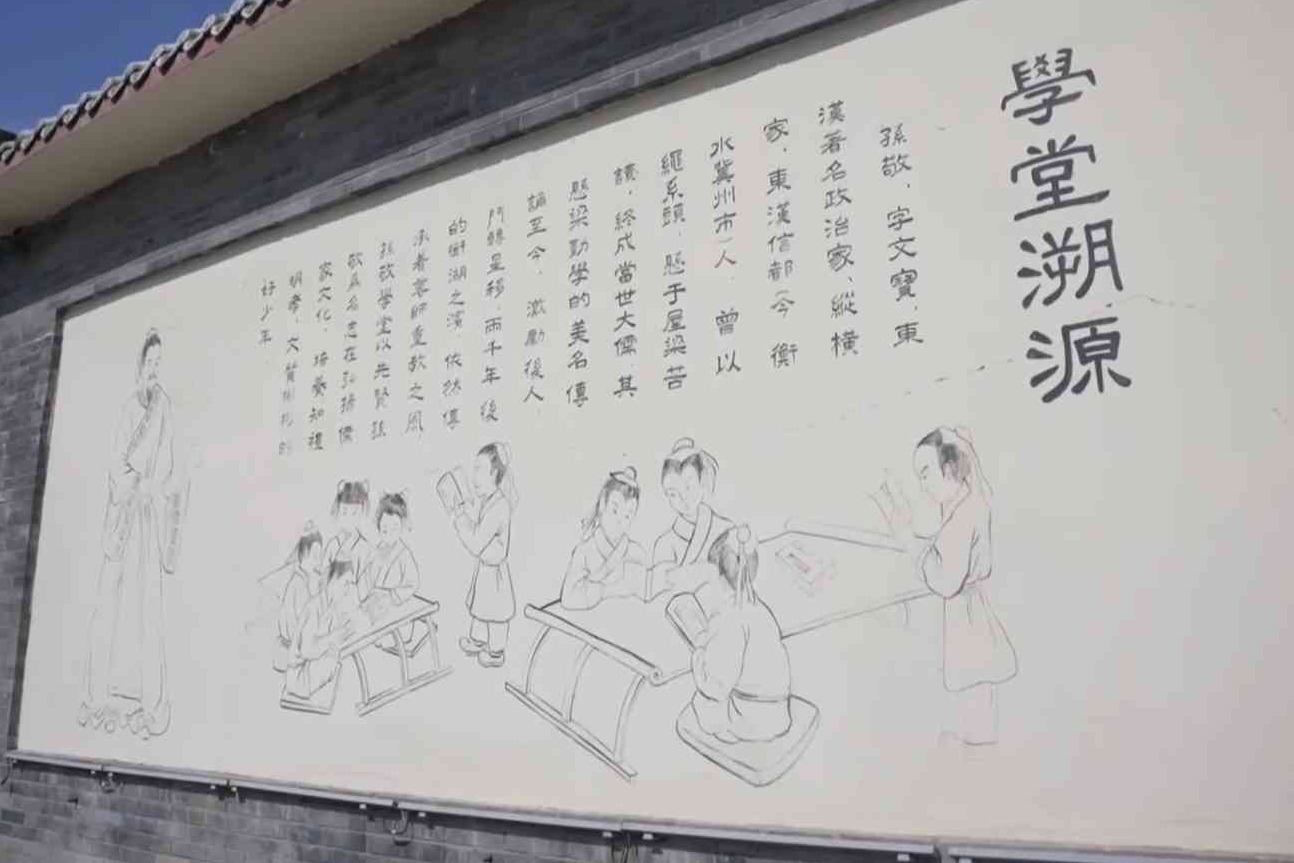 學堂溯源
孫敬，字文寶，東
漢著名政治家、縱橫
家，東漢信都（今衡
水冀州市）人，曾以
繩系頭，懸于屋梁苦
讀，終成當世大儒，其
懸梁勤學的美名傳
誦至今，激勵後人。
鬥轉星移，兩千年後
的衡湖之濱，依然傳
承着尊師重教之風，
孫敬學堂以先賢孫
敬爲名志在弘揚儒
家文化，培養知禮
明孝，文質彬彬的
好少年。